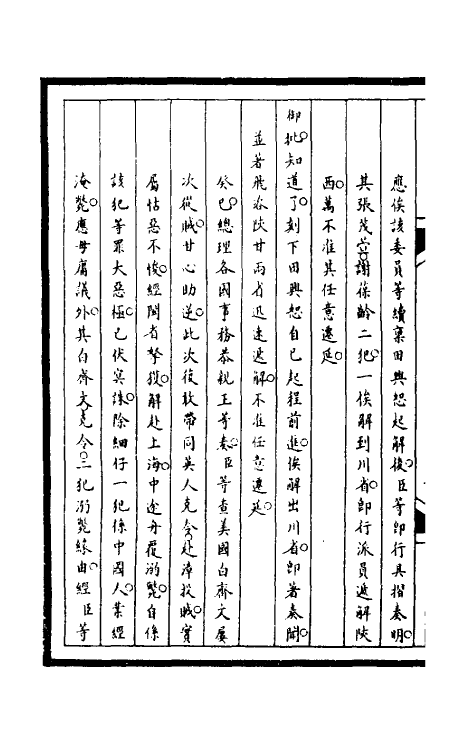 應俟該委員等續稟田興恕起解後。臣等即行具摺奏明。
其張茂萱謝葆齡二犯。一俟解到川省。即行派員遞解陝
西。萬不准其任意遷延。
御批。知道了。刻下田興恕自已起程前進。俟解出川省。即著奏聞。
並著飛咨陝甘兩省迅速遞解。不准任意遷延。
癸巳。總理各國事務恭親王等奏。臣等查美國白齊文屢
次從賊。甘心助逆。此次復敢帶同英人克令赴漳投賊。實
屬怙惡不悛。經閩省拏獲。解赴上海。中途舟覆溺斃。自係
該犯等罪大惡極。已伏冥誅。除細仔一犯係中國人。業經
淹斃。應毋庸議外。其白齊文克令。二犯溺斃緣由。經臣等